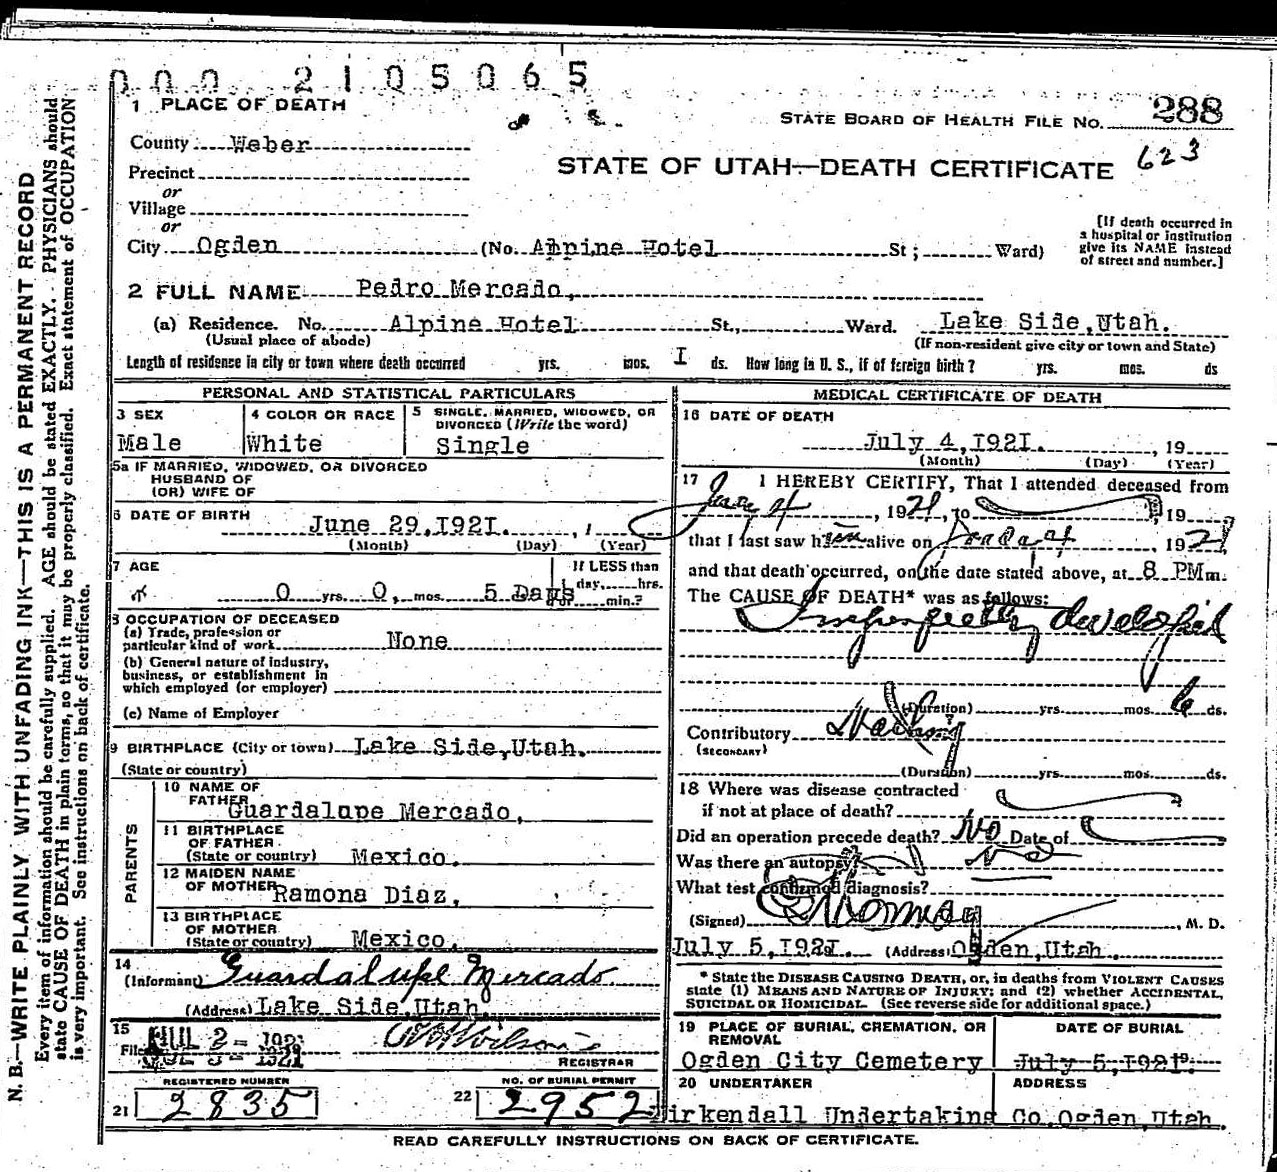 000 2105065
1 PLACE OF DEATH
STATE BOARD OF HEALTH FILE NO. 288
County Weber
STATE OF UTAH—DEATH CERTIFICATE 623
Precinct
or
Village
or
City Ogden (No. Alpine Hotel St; Ward)
[If death occurred in
a hospital or institution
give its NAME instead
of street and number.]
2 FULL NAME Pedro Mercado,
(a) Residence. No. Alpine Hotel St., Ward. Lake Side, Utah.
(Usual place of abode) (If non-resident give city or town and State)
Length of residence in city or town where death occurred yrs. mos. I ds. How long in U. S., if of foreign birth? yrs. mos. ds
PERSONAL AND STATISTICAL PARTICULARS
3 SEX
Male
4 COLOR OR RACE
White
5 SINGLE, MARRIED, WIDOWED, OR
DIVORCED (Write the word)
Single
5a IF MARRIED, WIDOWED, OR DIVORCED
HUSBAND OF
(OR) WIFE OF
6 DATE OF BIRTH June 29, I92I.
(Month) (Day) (Year)
7 AGE
0 yrs. 0, mos. 5 Days
If LESS than
1 day, hrs.
or min.?
8 OCCUPATION OF DECEASED
(a) Trade, profession or
particular kind of work None
(b) General nature of industry,
business, or establishment in
which employed (or employer)
(c) Name of Employer
9 BIRTHPLACE (City or town) Lake Side, Utah.
(State or country)
PARENTS
10 NAME OF
FATHER Guardalupe Mercado,
11 BIRTHPLACE
OF FATHER
(State or country) Mexico.
12 MAIDEN NAME
OF MOTHER Ramona Diaz,
13 BIRTHPLACE
OF MOTHER
(State or country) Mexico.
14
(Informant) Guardalupe Mercado
(Address) Lake Side, Utah.
15
Filed 1921 Wilson
REGISTRAR
REGISTERED NUMBER
21 2835
NO. OF BURIAL PERMIT
22 2952
MEDICAL CERTIFICATE OF DEATH
16 DATE OF DEATH
July 4, I92I. , 19
(Month) (Day) (Year)
17 I HEREBY CERTIFY, That I attended deceased from
4, 1921, to , 19
that I last saw him alive on 4, 1921
and that death occurred, on the date stated above, at 8 PM m.
The CAUSE OF DEATH* was as follows:
Imperfectly developed
(Duration) yrs. mos. 6 ds.
Contributory
(SECONDARY)
(Duration) yrs. mos. ds.
18 Where was disease contracted
if not at place of death?
Did an operation precede death? No Date of
Was there an autopsy? no
What test confirmed diagnosis?
(Signed) , M. D.
July 5, I92I. (Address) Ogden, Utah.
* State the DISEASE CAUSING DEATH, or, in deaths from VIOLENT CAUSES
state (1) MEANS AND NATURE OF INJURY; and (2) whether ACCIDENTAL,
SUICIDAL OR HOMICIDAL. (See reverse side for additional space.)
19 PLACE OF BURIAL, CREMATION, OR
REMOVAL
Ogden City Cemetery
DATE OF BURIAL
July 5, I921
20 UNDERTAKER ADDRESS
Kirkendall Undertaking Co. Ogden, Utah.
READ CAREFULLY INSTRUCTIONS ON BACK OF CERTIFICATE.
N. B.—WRITE PLAINLY WITH UNFADING INK—THIS IS A PERMANENT RECORD
Every item of information should be carefully supplied. AGE should be stated EXACTLY. PHYSICIANS should
state CAUSE OF DEATH in plain terms, so that it may be properly classified. Exact statement of OCCUPATION
is very important. See instructions on back of certificate.